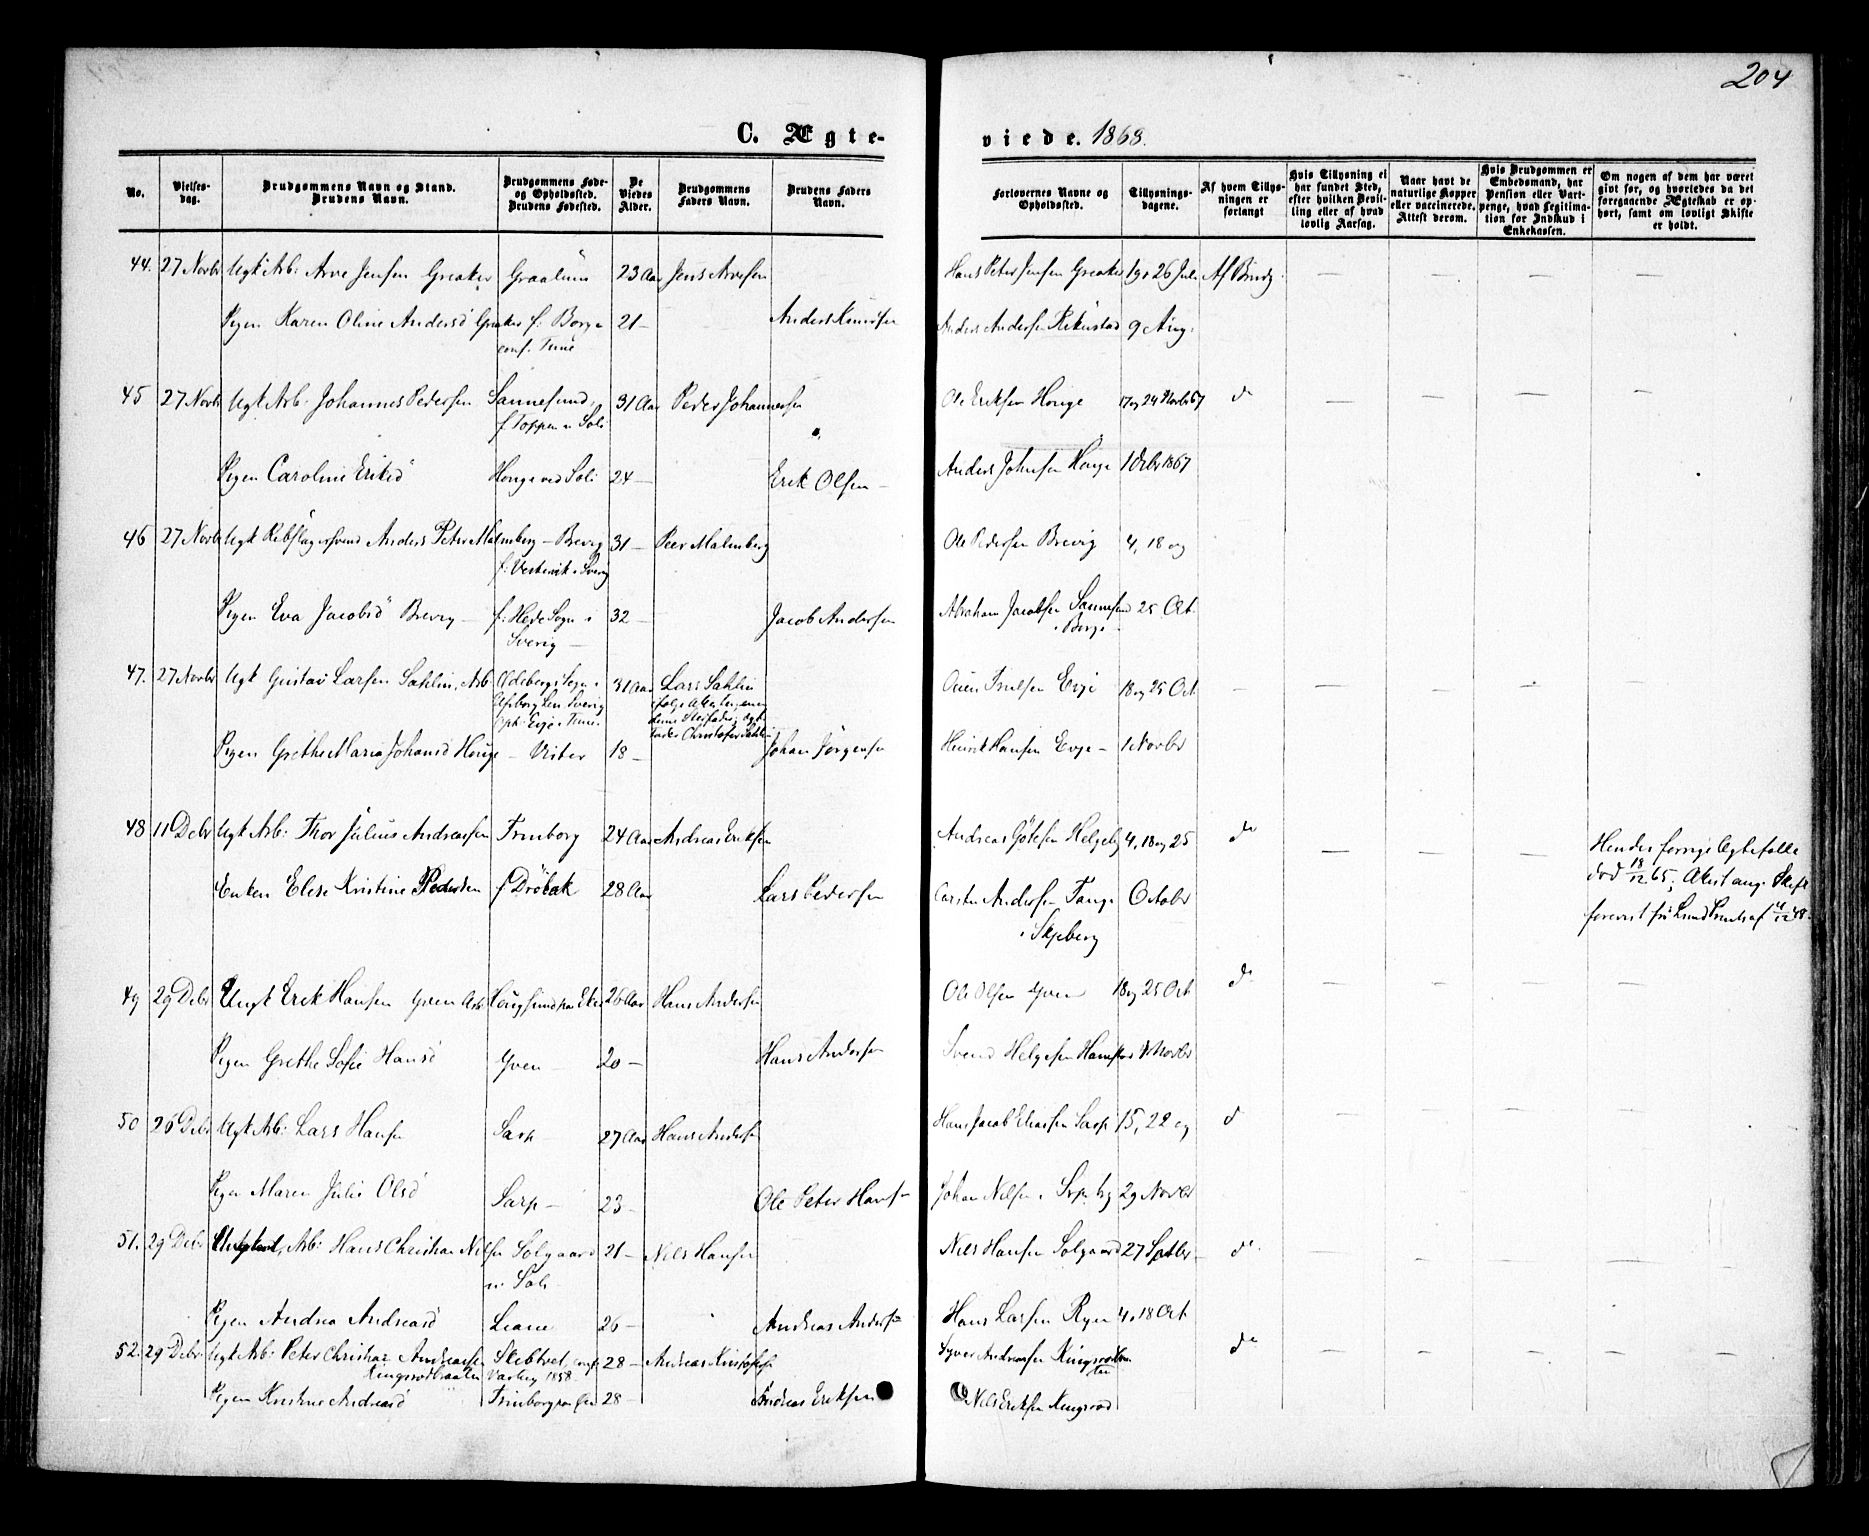 204
C. Ægte-
viede. 1868.
No.
Vielses-
dag.
Brudgommens Navn og Stand.
Brudens Navn.
Brudgommens Føde-
og Opholdssted.
Brudens Fødested.
De
Viedes
Alder.
Brudgommens
Faders Navn.
Brudens Faders
Navn.
Forlovernes Navne og
Opholdssted.
Tillysnings-
dagene.
Af hvem Tillys-
ningen er
forlangt
Hvis Tillysning ei
har fundet Sted,
efter hvilken Bevil-
ling eller af hvad
lovlig Aarsag.
Naar havt de
naturlige Kopper
eller vaccinerede.
Attest derom.
Hvis Brudgommen er
Embedsmand, har
Pension eller Vart-
penge, hvad Legitima-
tion for Indskud i
Enkekassen.
Om nogen af dem har været
gift før, og hvorledes da det
foregaaende Ægteskab er op-
hørt, samt om lovligt Skifte
er holdt.
44. 27 Novbr Ugk Arb: Arve Jensen Greaker Graalum 23 Aar Jens Arvesen Hans Peter Jensen Greaker 19 o 26 Juli Af Brudg: — — — —
Pigen Karen Oline Andersd Greaker f: Borge 21 — Anders Knudsen Anders Andersen Rekustad 9 Aug:
conf. Tune
45 27 Novbr Ugk Arb: Johannes Pedersen Sannesund, 31 Aar Peder Johannesen Ole Eriksen Houge 17 og 24 Novbr 67 do — — — —
f. Toppen v Soli
Pigen Caroline Eriksd Houge ved Soli 24 — Erik Olsen — Anders Johnsen Houge 1 Decbr 1867
46 27 Novbr Ugk Rebslagersvend Anders Peter Malmberg — Brevig 31 — Peer Malmberg Ole Pedersen Brevig 4, 18 og
f: Vestervik i Sverig
Pigen Eva Jacobsd Brevig — f: Hede Sogn i 32 — Jacob Andersen Abraham Jacobsen Sannesund 25 Oct.
Sverig — i Borge
47. 27 Novbr Ugk Gustav Larsen Sahlin, Arb. Ødeborgs Sogn i 31 Aar Lars Sahlin Ouen Truelsen Evje 18 og 25 Oct — — — — —
Elfsborg Len Sverig
oph: Evje i Tune.
Christofer Sahlin
Pigen Grethe Maria Johansd Houge — Vister 18 — Johan Jørgensen Henrik Hansen Evje — 1 Novbr
48 11 Debr Ugk Arb: Thor Julius Andreassen Trinborg 24 Aar Andreas Eriksen Andreas Götesen Helgeby 4, 18 og 25 do — — — Hendes forrige Ægtefælle
død 18/12 65; Attest ang. Skifte
Enken Elese Kristine Pedersen f Drøbak 28 Aar Lars Pedersen Carsten Andersen Tange October
i Skjeberg
49 29 Debr Ungk Erik Hansen Yven Arb. Hougsund paa Eker 26 Aar Hans Andersen Ole Olsen Yven 18 og 25 Oct do — — — —
Pigen Grethe Sofie Hansd Yven — 20 — Hans Andersen Svend Helgesen 1 Novbr
50 26 Debr Ugk Arb: Lars Hansen Sarp — 27 Aar Hans Andersen Hans Jacob Eliassen Sarp 15, 22 og do — — — —
Pigen Maren Julie Olsd Sarp — 23 — Ole Peter Hansen Johan Nilsen i Sarpsborg 29 Novbr
51. 29 Debr Arb: Hans Christian Nilsen Solgaard 21 — Nils Hansen Nils Hansen Solgaard 27 Septbr — do — — — —
v. Soli
Pigen Andrea Andreasd Liane 26 — Andreas Andersen Hans Larsen Ryen 4, 18 Oct
52. 29 Debr Ugk Arb: Peter Christian Andreassen Skebtvet, conf. 28 — Andreas Kristofersen Syver Andreassen Kingsrød do — — — — —
Kingsrødbraaten Varteig 1858
Pigen Kristine Andreasd Trinborg 28 — Andreas Eriksen Nils Eriksen Kingsrød